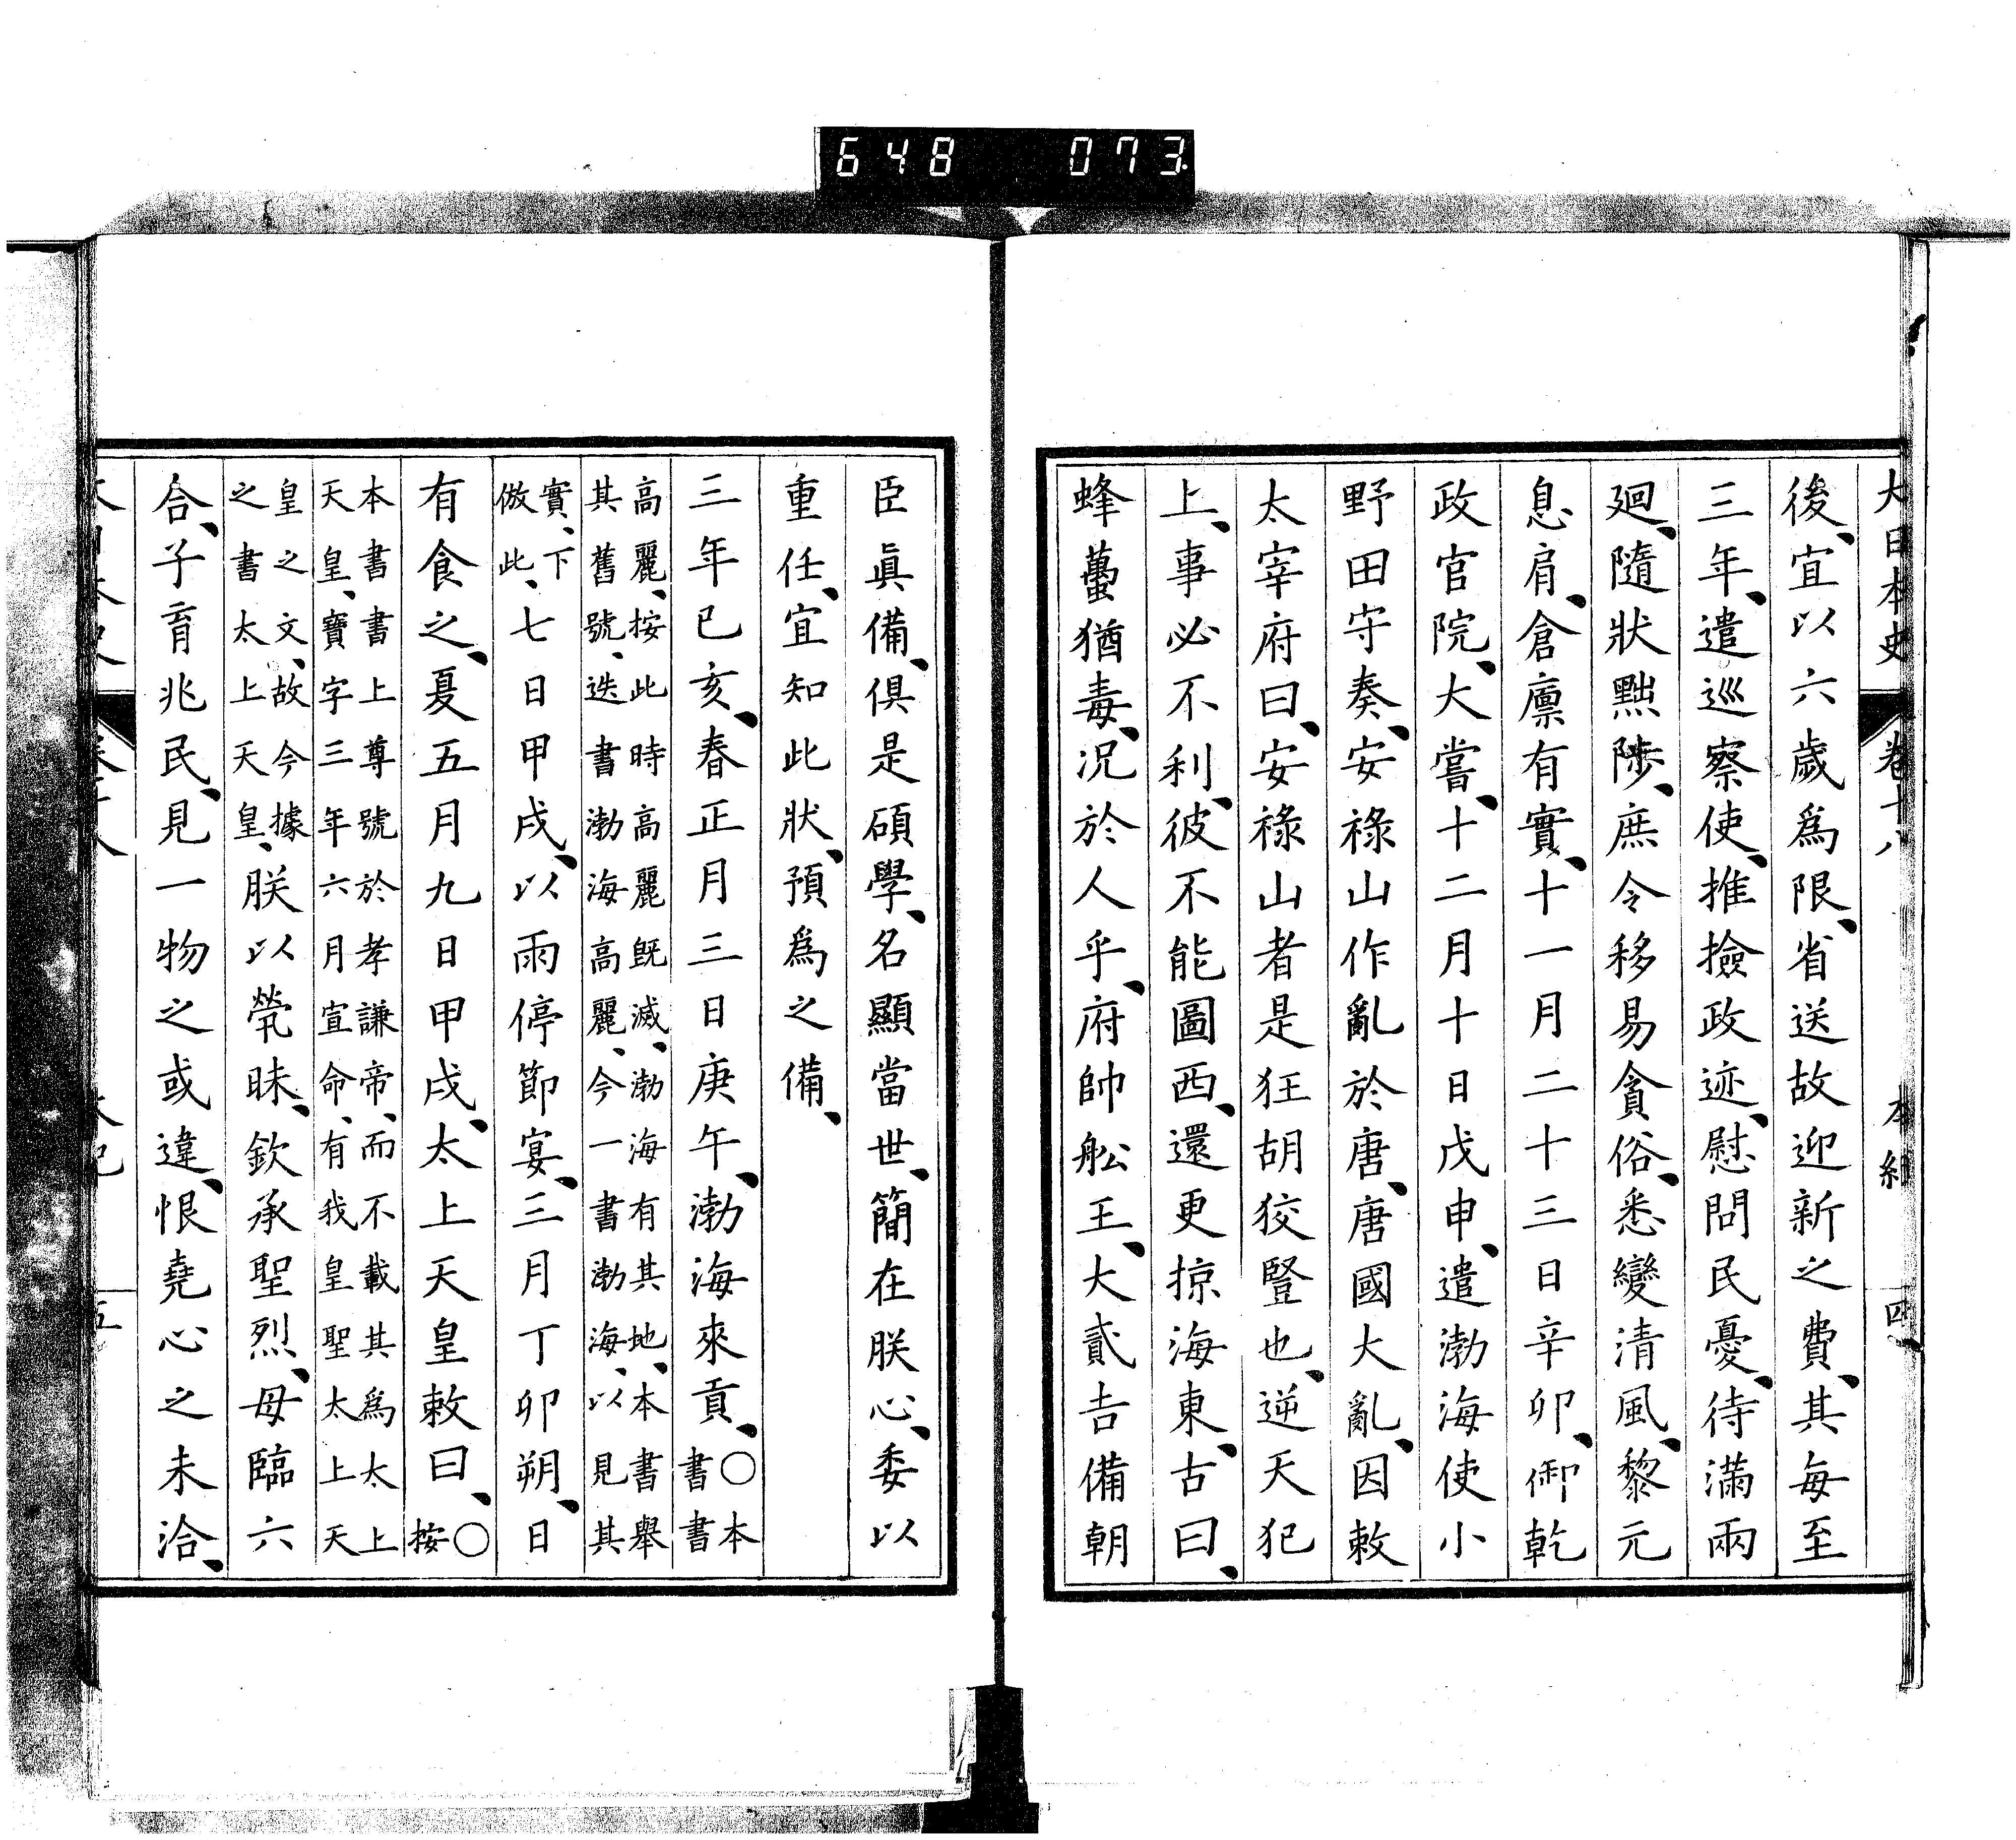 648 073
大日本史 卷十八 本紀 四
後、宜以六歲爲限、省送故迎新之費、其每至
三年、遣巡察使、推撿政迹、慰問民憂、待滿兩
廻、隨狀黜陟、庶令移易貪俗、悉變清風、黎元
息肩、倉廩有實、十一月二十三日辛卯、御乾
政官院、大嘗、十二月十日戊申、遣渤海使小
野田守奏、安祿山作亂於唐、唐國大亂、因敕
太宰府曰、安祿山者是狂胡狡豎也、逆天犯
上、事必不利、彼不能圖西、還更掠海東、古曰、
蜂蠆猶毒、況於人乎、府帥船王、大貳吉備朝
臣眞備、俱是碩學、名顯當世、簡在朕心、委以
重任、宜知此狀、預爲之備、
三年己亥、春正月三日庚午、渤海來貢、○本書書
高麗、按此時高麗既滅、渤海有其地、本書舉
其舊號、迭書渤海高麗、今一書渤海、以見其
實、下倣此、七日甲戌、以雨停節宴、三月丁卯朔、日
有食之、夏五月九日甲戌、太上天皇敕曰、○按
本書書上尊號於孝謙帝、而不載其爲太上
天皇、寶字三年六月宣命、有我皇聖太上天
皇之文、故今據之書太上天皇、朕以煢昧、欽承聖烈、母臨六
合、子育兆民、見一物之或違、恨堯心之未洽、